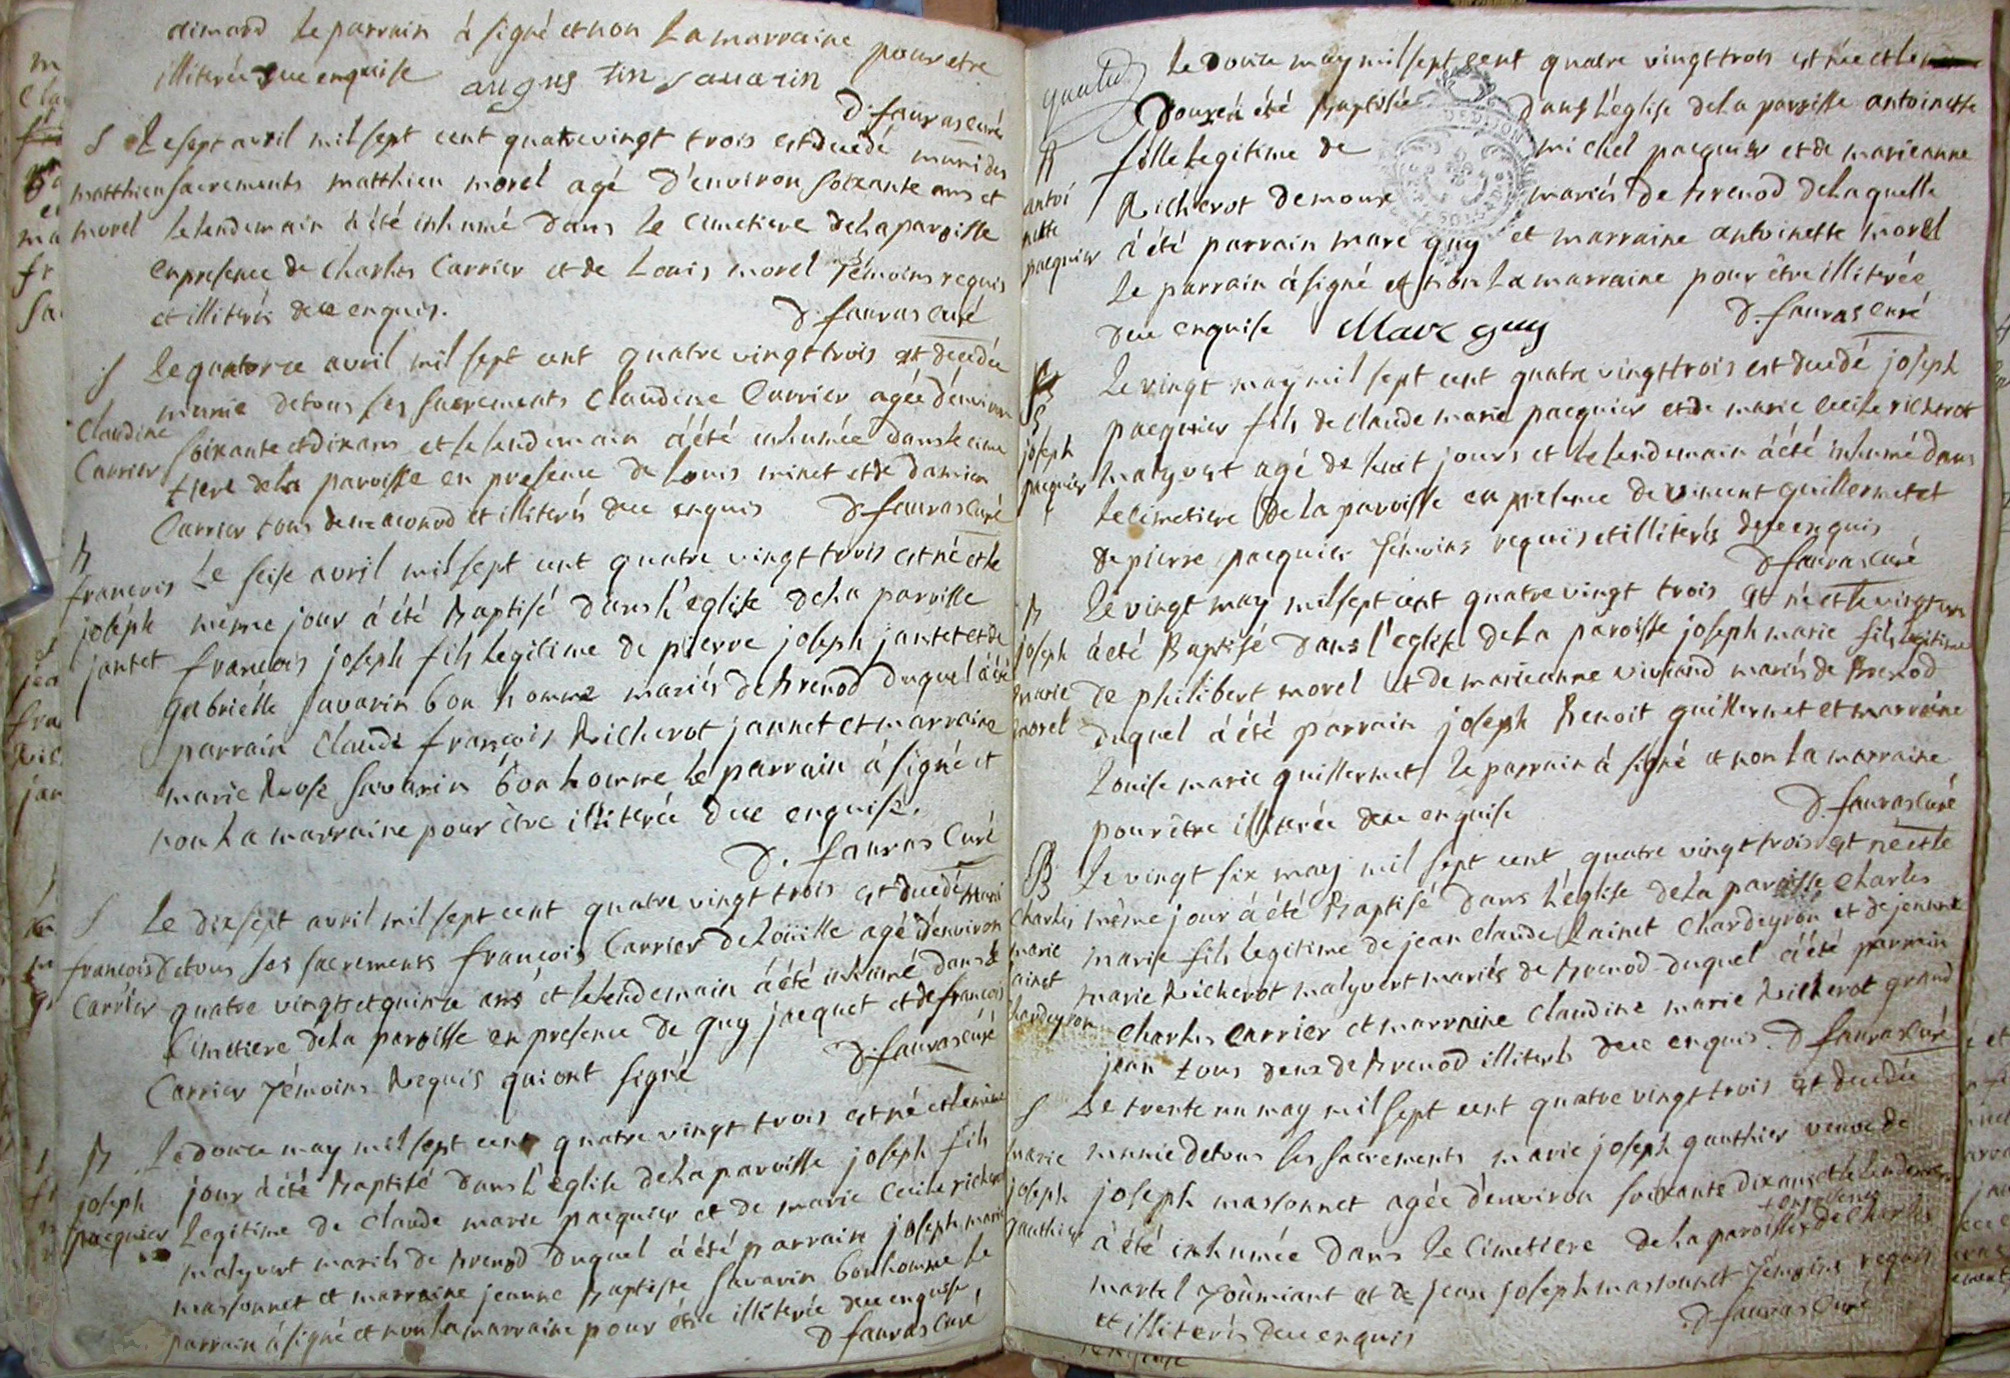 aimard le parrain à signé et non la marraine pour etre
illiterée de ce enquise augustin savarin
D. fauras curé
S
matthieu
morel
Le sept avril mil sept cent quatrevingt trois est decedé muni des
sacrements matthieu morel agé d'environ soixante ans et
le lendemain à été inhumé dans le cimetiere de la paroisse
en presence de Charles Carrier et de Louis morel témoins requis
et illiterés de ce enquis.
D. fauras curé
S
Claudine
Carrier
Le quatorze avril mil sept cent quatre vingt trois est decedée
munie de tous ses sacrements Claudine Carrier agée d'environ
soixante et dix ans et le lendemain à été inhumée dans le cime
tiere de la paroisse en presence de Louis minet et de Damien
Carrier tous de et illiterés de ce enquis D. fauras curé
B
francois
joseph
jantet
Le seise avril mil sept cent quatre vingt trois est né et le
même jour à été Baptisé dans l'eglise de la paroisse
francois joseph fils legitime de pierre joseph jantet et de
gabrielle savarin bon homme mariés de Brenod duquel à été
parrain Claude françois Richerot jannet et marraine
marie Rose savarin bon homme le parrain à signé et
non la marraine pour être illiterée de ce enquise.
D. fauras Curé
S
francois
Carrier
Le dix sept avril mil sept cent quatre vingt trois est decedé muni
de tous ses sacrements francois Carrier agé d'environ
quatre vingts et quinze ans et le lendemain à été inhumé dans le
Cimetiere de la paroisse en presence de guy jacquet et de francois
Carrier témoins Requis qui ont signé
D. fauras curé
B
joseph
pacquier
Le douze may mil sept cent quatre vingt trois est né et le même
jour à été Baptisé dans l'eglise de la paroisse joseph fils
Legitime de Claude marie pacquier et de marie Cecile richerot
malyvert mariés de Brenod duquel à été parrain joseph marie
massonnet et marraine jeanne Baptiste savarin bonhomme le
parrain à signé et non la marraine pour être illiterée de ce enquise,
D fauras curé
B
antoi
nette
pacquier
Le douze may mil sept cent quatre vingt trois est née et le
Douze à été Baptisée dans l'eglise de la paroisse antoinette
fille legitime de michel pacquier et de marieanne
Richerot demoux mariés de Brenod de laquelle
à été parrain marc guy et marraine antoinette morel
le parrain à signé et non la marraine pour être illiterée
de ce enquise Marc guy
D. fauras curé
S
joseph
pacquier
Le vingt may mil sept cent quatre vingt trois est decedé joseph
pacquier fils de Claude marie pacquier et de marie Cecile richerot
malyvert agé de huit jours et le lendemain à été inhumé dans
le cimetiere de la paroisse en presence de vincent guillermet et
de pierre pacquier témoins requis et illiterés de ce enquis
D fauras curé
B
joseph
marie
morel
Le vingt may mil sept cent quatre vingt trois est né et le vingt un
à été Baptisé dans l'eglise de la paroisse joseph marie fils legitime
de philibert morel et de marieanne viviand mariés de Brenod
duquel à été parrain joseph Benoit guillermet et marraine
Louise marie guillermet le parrain à signé et non la marraine
pour être illiterée de ce enquise
D. fauras curé
B
Charles
marie
ainet
hardeyron
Le vingt six may mil sept cent quatre vingt trois est né et le
même jour à été Baptisé dans l'eglise de la paroisse Charles
marie fils legitime de jean Claude Lainet Chardeyron et de jeanne
marie Richerot malyvert mariés de Brenod duquel à été parrain
Charles Carrier et marraine Claudine marie Richerot grand
jean tous deux de Brenod illiterés de ce enquis. D fauras Curé
S
marie
joseph
gauthier
Le trente un may mil sept cent quatre vingt trois est decedée
munie de tous ses sacrements marie joseph gauthier veuve de
joseph massonnet agée d'environ soixante dix ans et le lendemain
à été inhumée dans le cimetiere de la paroisse + en presence de Charles
martel et de jean joseph massonnet témoins requis
et illiterés de ce enquis
D fauras Curé